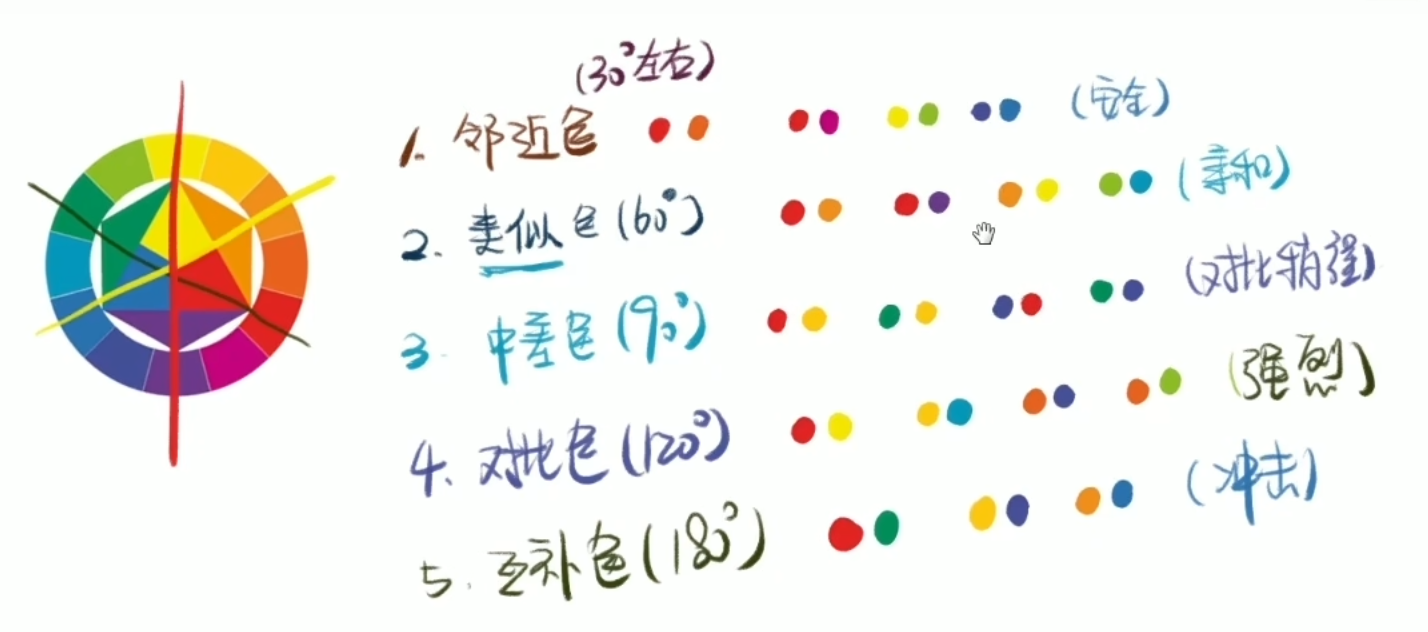 (30°左右)
1. 邻近色 (安全)
2. 类似色(60°) (亲和)
3. 中差色(90°) (对比稍强)
4、对比色(120°) (强烈)
5. 互补色(180°) (冲击)